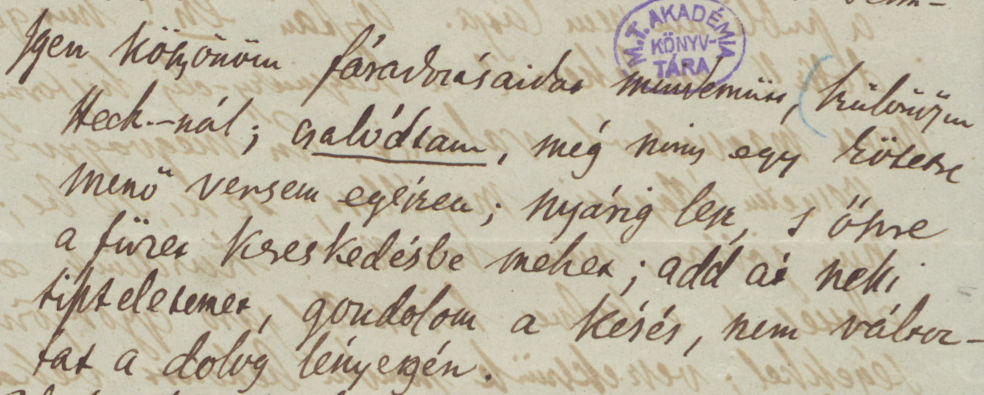 Igen köszönöm fáradozásaidat mindenütt, különösen
M.T. AKADÉMIA
KÖNYV-
TÁRA
Heck-nál; csalódtam, még nincs egy kötetre
menő versem egészen; nyárig lesz, s őszre
a füzet kereskedésbe mehet; add át neki
tiszteletemet, gondolom a késés, nem változ-
tat a dolog lényegén.